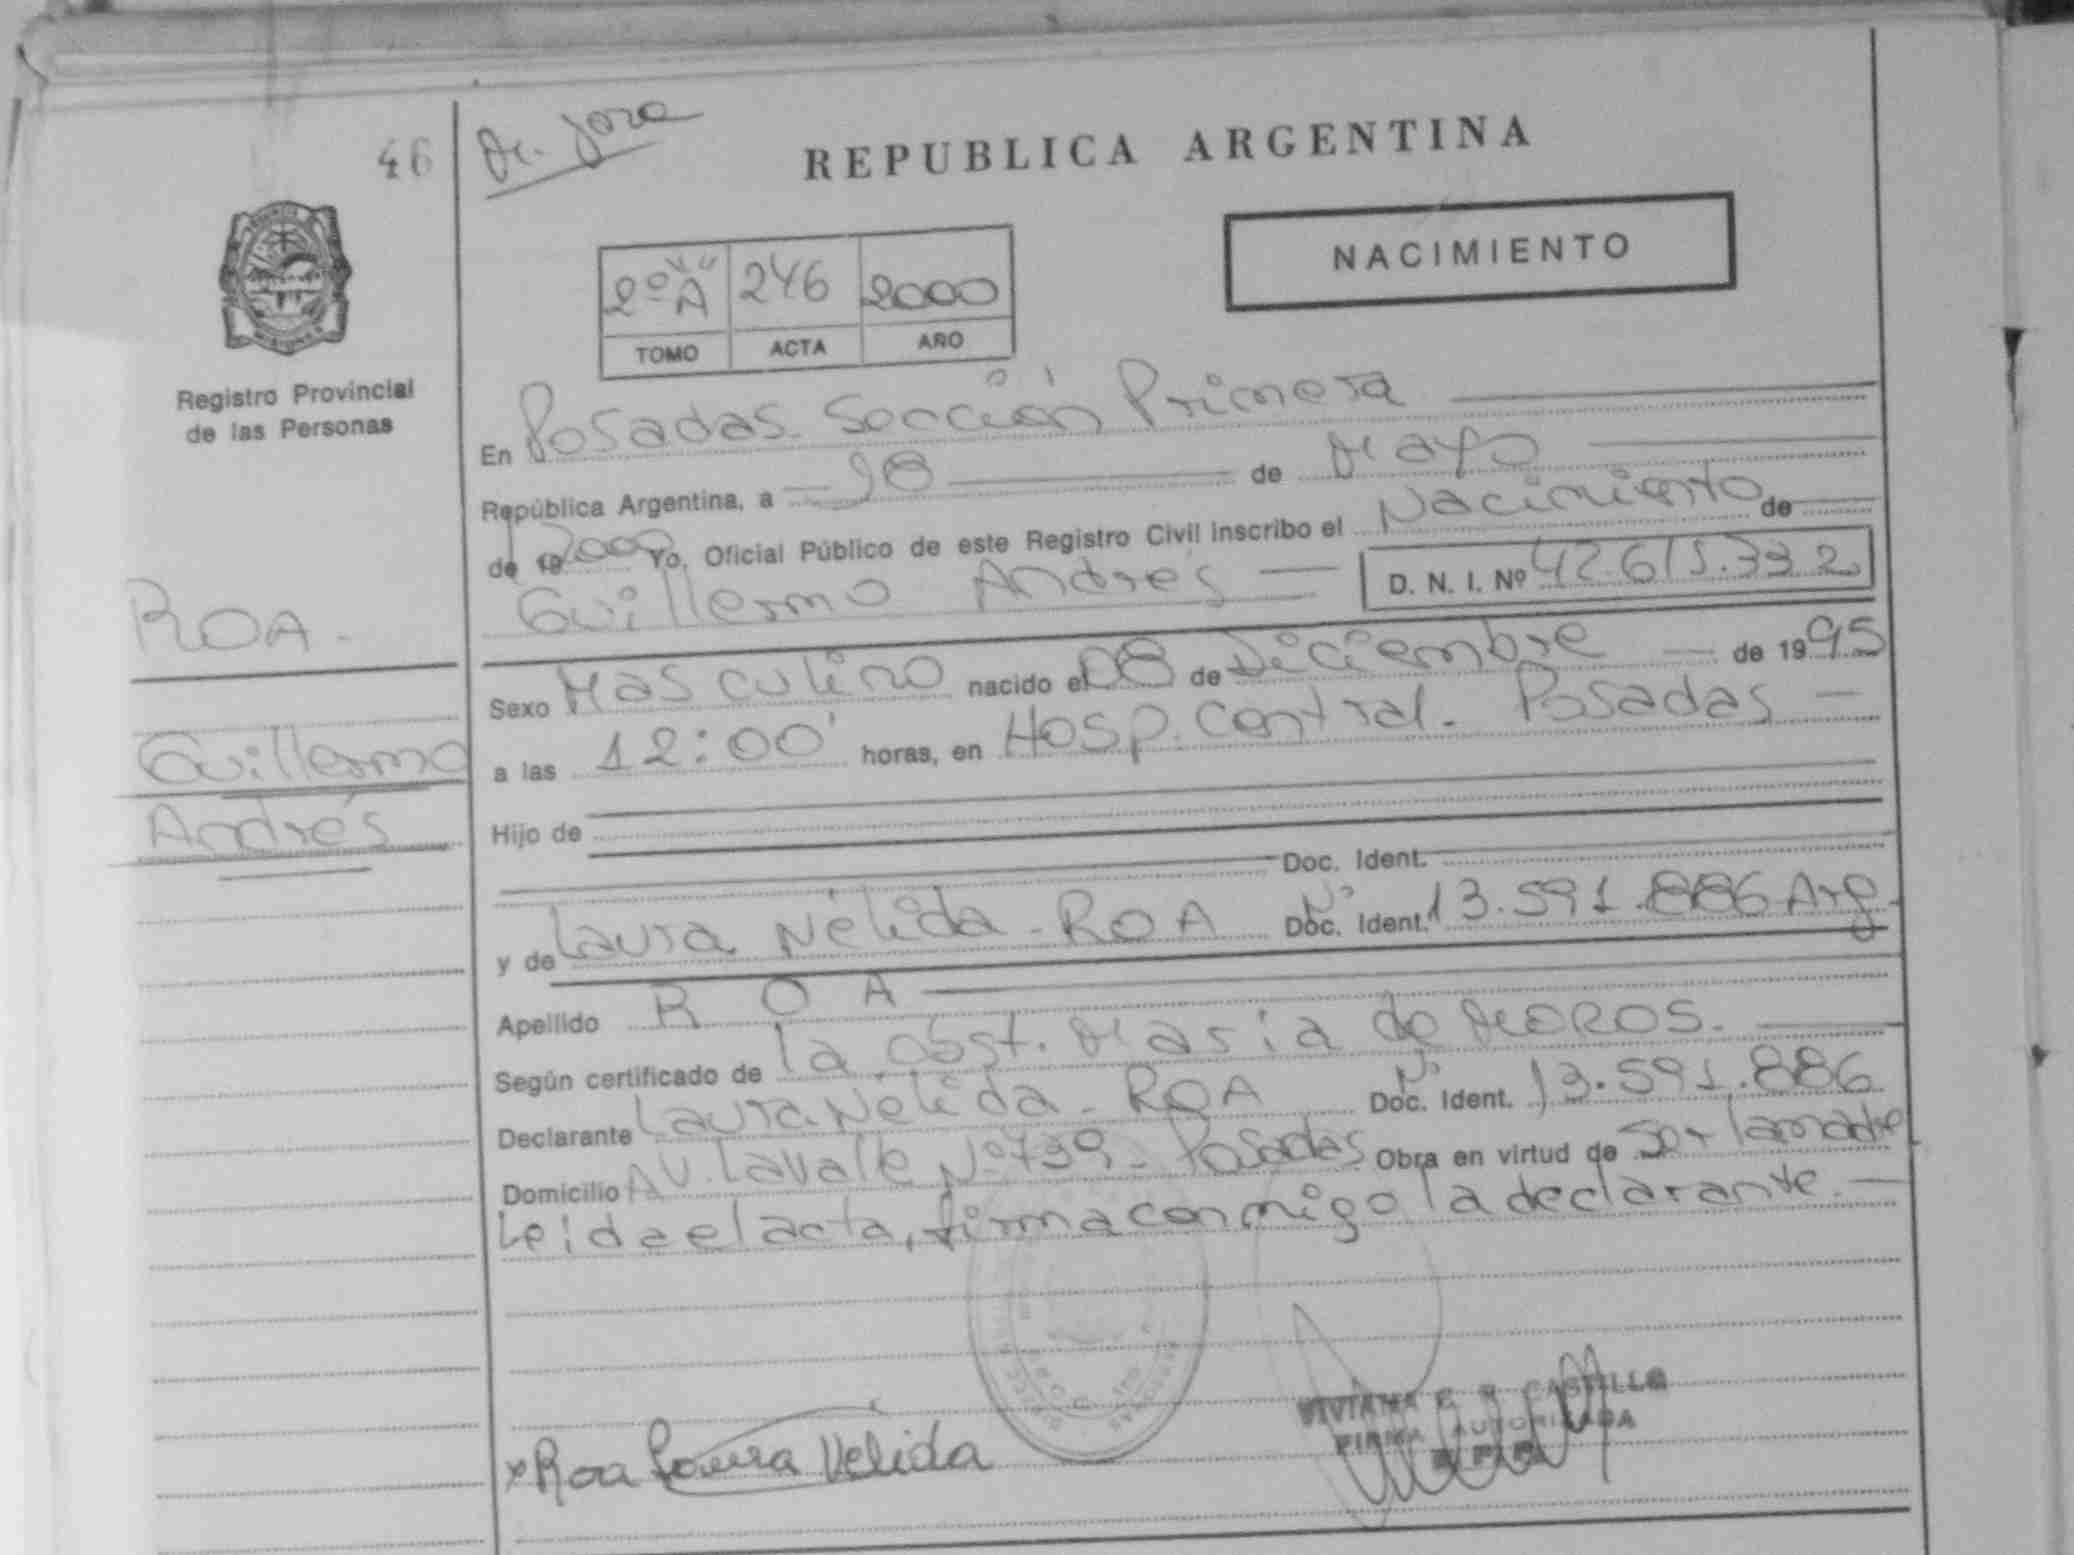 46
REPUBLICA ARGENTINA
NACIMIENTO
2º "A" 246 2000
TOMO ACTA AÑO
Registro Provincial
de las Personas
En Posadas. Sección Primera
República Argentina, a 18 de Mayo
de 19 2000 Yo, Oficial Público de este Registro Civil inscribo el Nacimiento de
Guillermo Andrés D. N. I. Nº 42.615.332
ROA.
Sexo Masculino nacido el 08 de Diciembre de 1995
Guillermo
a las 12:00' horas, en Hosp. Central. Posadas
Andrés
Hijo de
Doc. Ident.
y de Laura Nélida - ROA Doc. Ident. Nº 13.591.886 Arg.
Apellido ROA
Según certificado de la obst. Maria de MOROS.
Declarante Laura Nélida - ROA Doc. Ident. Nº 13.591.886
Domicilio AV. Lavalle Nº 739 - Posadas Obra en virtud de ser la madre
Leida el acta, firma conmigo la declarante.
x Roa Laura Nelida
VIVIANA CASTILLO
FIRMA AUTORIZADA